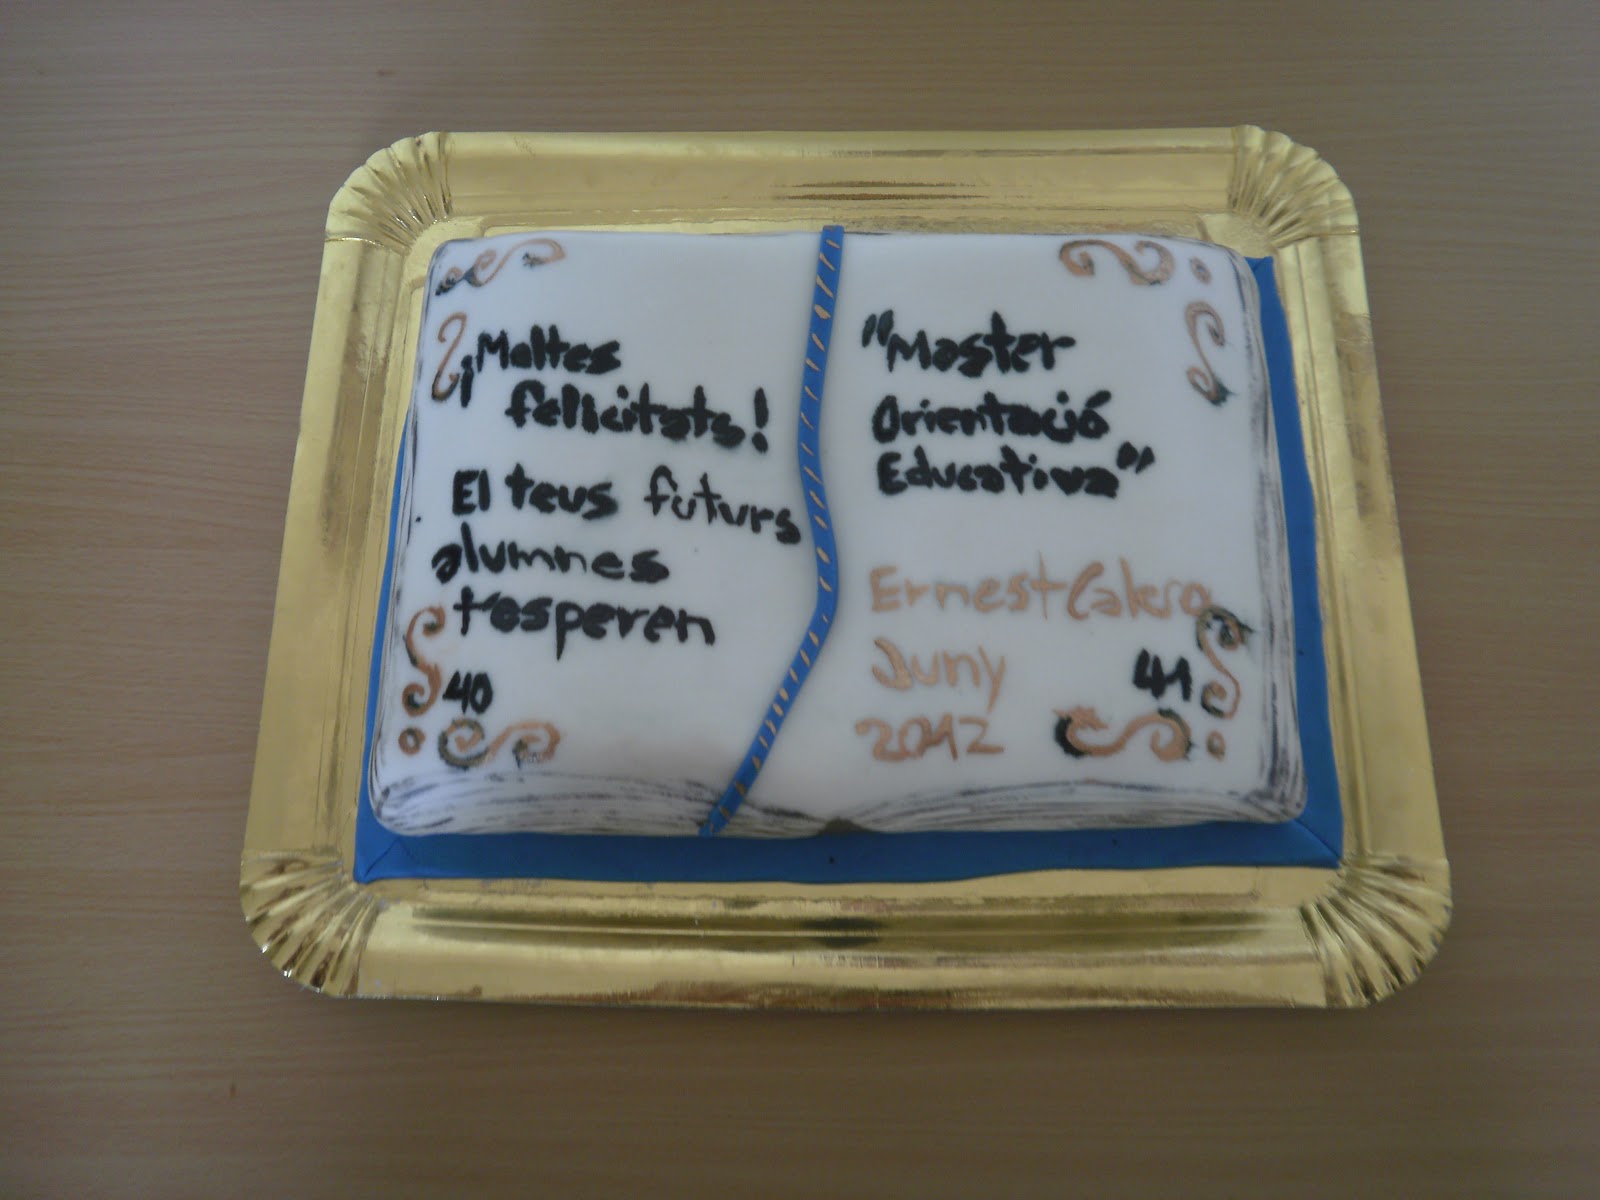 ¡Moltes
felicitats!
El teus futurs
alumnes
t'esperen
40
"Master
Orientació
Educativa"
Ernest Calero
Juny
2012
41